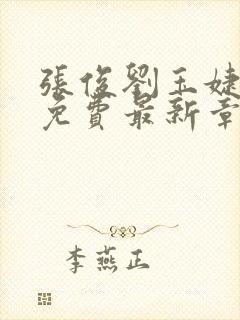 張俊劉玉婕
免費最新章
李燕正